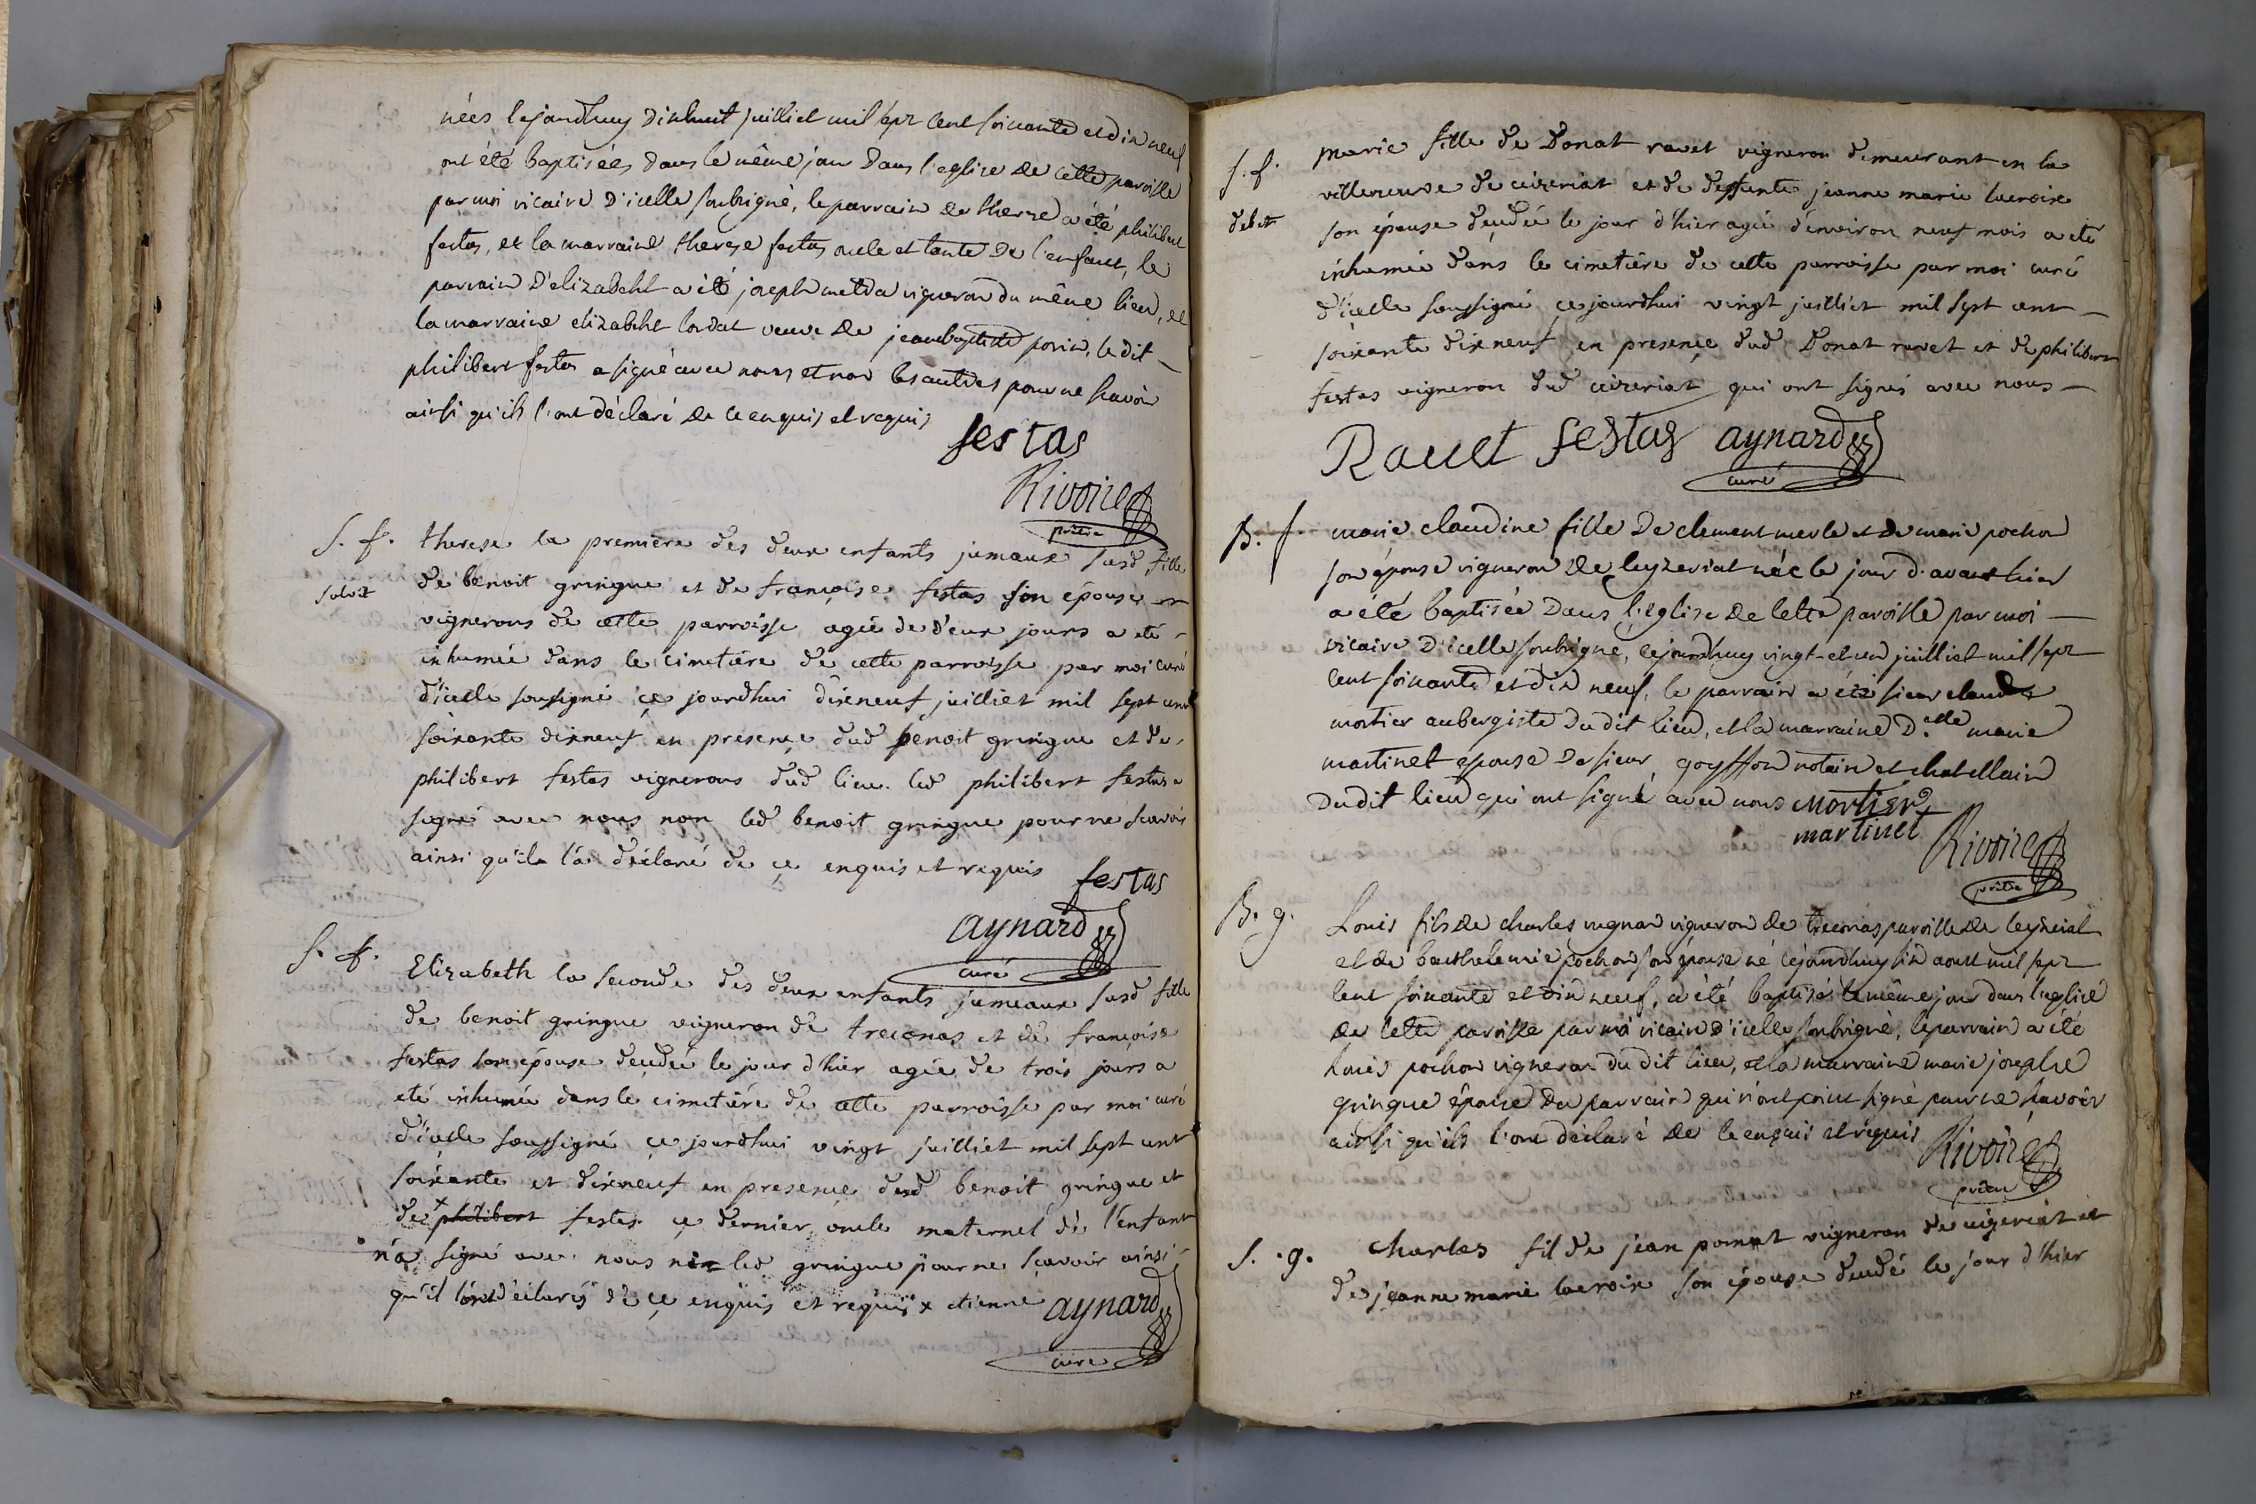 nées cejourdhuy dixhuit juilliet mil sept cent soixante et dix neuf
ont été baptisées dans le même jour dans l'eglise de cette paroisse
par moi vicaire d'icelle soubsigné, le parrain de therese a été philibert
festas, et la marraine therese festas oncle et tante de l'enfant, le
parrain d'elizabeht a été joseph vigneron du même lieu, et
la marraine elizabeht veuve de jeanbaptiste le dit
philibert festas a signé avec nous et non les autres pour ne scavoir
ainsi qu'ils l'ont déclaré de ce enquis et requis
festas
Rivoire
prêtre
S. f. therese la première des deux enfants jumeaux susd fille
de benoit gringue et de françoise festas son épouse
solvit
vignerons de cette parroisse agée de deux jours a été
inhumée dans le cimetière de cette parroisse par moi curé
d'icelle soussigné ce jourdhui dixneuf juilliet mil sept cent
soixante dixneuf en presence dud benoit gringue et de
philibert festas vignerons dud lieu. led philibert festas a
signé avec nous non led benoit gringue pour ne scavoir
ainsi qu'il l'a déclaré de ce enquis et requis festas
aynard
curé
S. f. Elizabeth la seconde des deux enfants jumeaux susd fille
de benoit gringue vigneron de treconas et de françoise
festas son épouse décédée le jour d'hier agée de trois jours a
eté inhumée dans le cimetière de cette parroisse par moi curé
d'icelle soussigné ce jourdhui vingt juilliet mil sept cent
soixante et dixneuf en presence dud benoit gringue et
de + philibert festas ce dernier oncle maternel de l'enfant
n'a signé avec nous led gringue pour ne scavoir ainsi
qu'il déclaré de ce enquis et requis x etienne aynard
curé
S. f. marie fille de Donat ravet vigneron demeurant en la
villeneuve de ceizeriat et de deffunte jeanne marie lacroix
debet son épouse décédée le jour d'hier agée d'environ neuf mois a eté
inhumée dans le cimetière de cette parroisse par moi curé
d'icelle soussigné ce jourdhui vingt juilliet mil sept cent
soixante dixneuf en presence dud Donat ravet et de philibert
festas vigneron dud ceizeriat qui ont signés avec nous
Rauet festas aynard
curé
B. f. marie claudine fille de clement merle et de marie pochon
son épouse vigneron de leyzeriat née le jour d'avant hier
a été baptisée dans l'eglise de cette paroisse par moi
vicaire d'icelle soubsigné, cejourdhuy vingt-et un juilliet mil sept
cent soixante et dix neuf, le parrain a été sieur claude
mortier aubergiste du dit lieu, et la marraine D.elle marie
martinet epouse de sieur goyffon notaire et chatellain
du dit lieu qui ont signé avec nous mortier
martinet Rivoire
prêtre
B. g. Louis fils de charles vigneron de treconas paroisse de ceyzeriat
et de barthelemie pochon son épouse né cejourdhuy six aoust mil sept
cent soixante et dix neuf, a été baptisé le même jour dans l'eglise
de cette paroisse par moi vicaire d'icelle soubsigné, le parrain a été
Louis pochon vigneron du dit lieu, et la marraine marie josephe
gringue épouse du parrain qui n'ont point signé pour ne scavoir
ainsi qu'ils l'ont déclaré de ce enquis et requis Rivoire
prêtre
S. g. Charles fil de jean vigneron de ceizeriat et
de jeanne marie lacroix son épouse décédé le jour d'hier